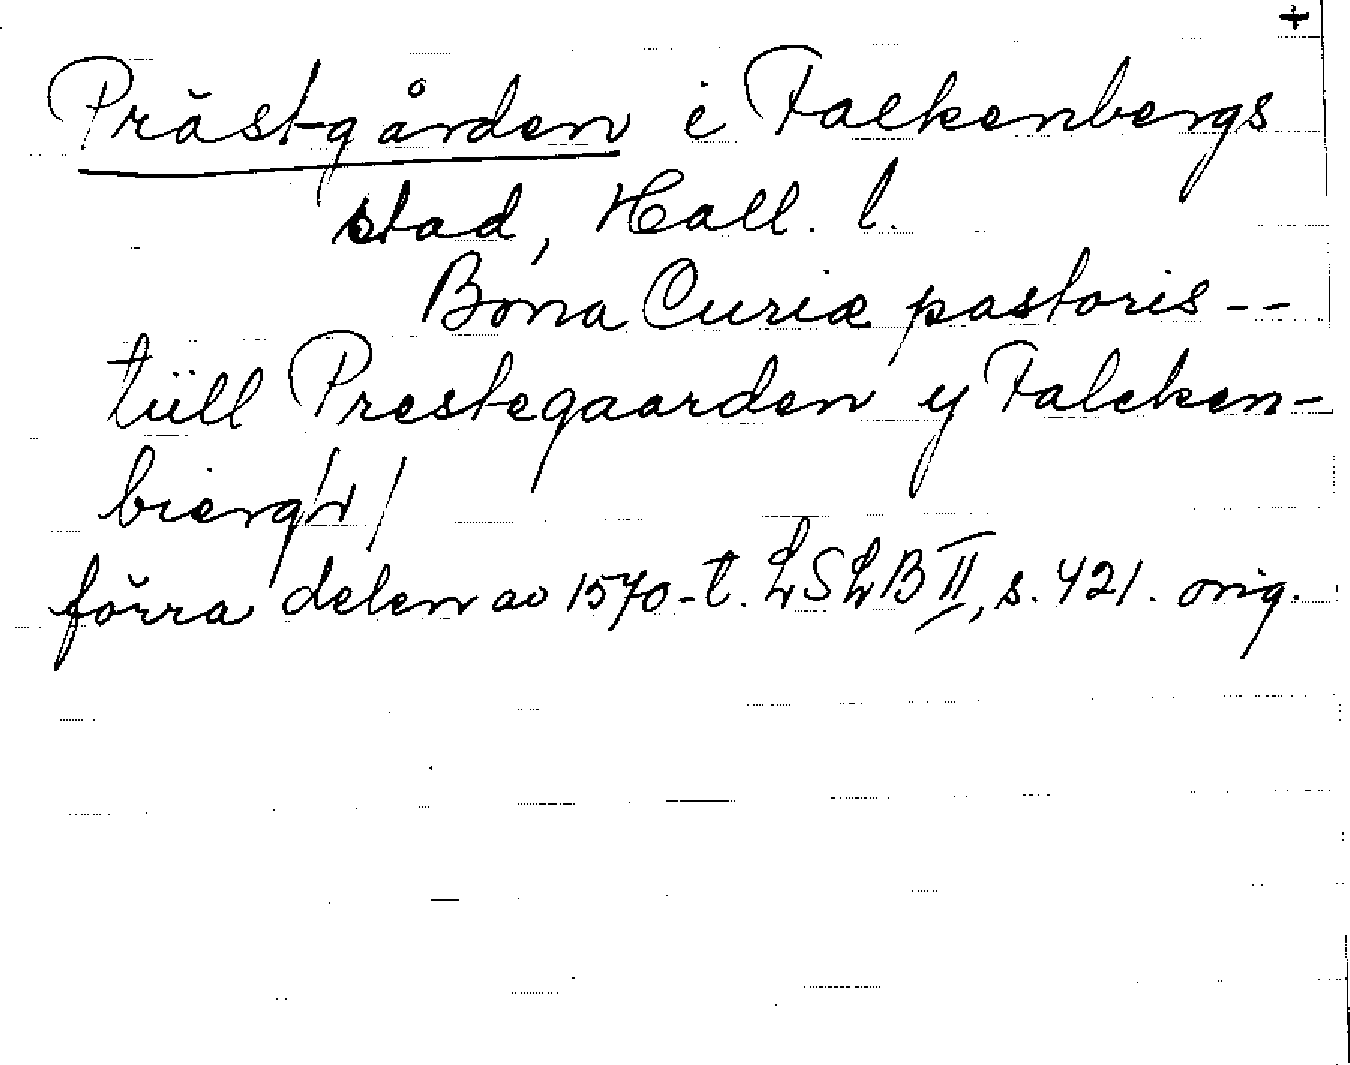 +
Prästgården i Falkenbergs
stad, Hall. l.
Bona Curiæ pastoris --
tüll Prestegaarden y Falcken-
biergh/
förra delen av 1570-t. LSLB II, s. 421. orig.